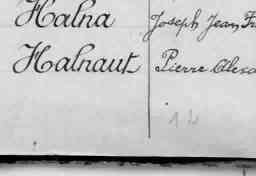 Halna Joseph Jean
Halnaut Pierre
12